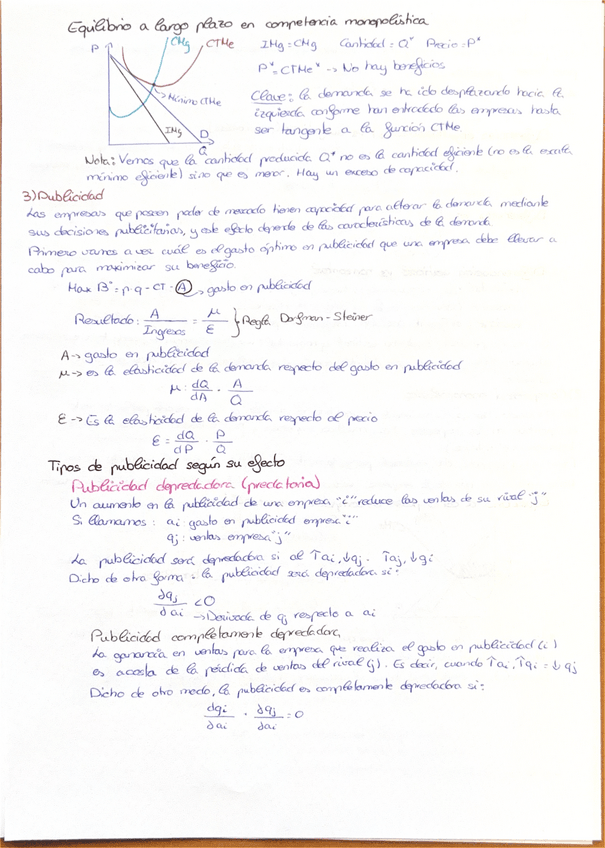 Equilibrio a largo plazo en competencia monopolística
P CMg CTMe
IMg = CMg Cantidad: Q* Precio: P*
P* = CTMe* → No hay beneficios
→ Mínimo CTMe
IMg D
Q
Clave: la demanda se ha ido desplazando hacia la
izquierda conforme han entrado las empresas hasta
ser tangente a la función CTMe
Nota: Vemos que la cantidad producida Q* no es la cantidad eficiente (no es la escala
mínimo eficiente) sino que es menor. Hay un exceso de capacidad.
3) Publicidad
Las empresas que poseen poder de mercado tienen capacidad para alterar la demanda mediante
sus decisiones publicitarias, y este efecto depende de las características de la demanda
Primero vamos a ver cuál es el gasto óptimo en publicidad que una empresa debe llevar a
cabo para maximizar su beneficio.
Max Bº = p·q - CT - A → gasto en publicidad
Resultado: A / Ingresos = μ / ε } Regla Dorfman-Steiner
A → gasto en publicidad
μ → es la elasticidad de la demanda respecto del gasto en publicidad
μ: dQ/dA · A/Q
ε → Es la elasticidad de la demanda respecto al precio
ε = dQ/dP · P/Q
Tipos de publicidad según su efecto
Publicidad depredadora (predatoria)
Un aumento en la publicidad de una empresa "i" reduce las ventas de su rival "j"
Si llamamos: ai: gasto en publicidad empresa "i"
qj: ventas empresa "j"
La publicidad será depredadora si al ↑ai, ↓qj. ↑aj, ↓qi
Dicho de otra forma: la publicidad será depredadora si:
∂qj/∂ai < 0
→ Derivada de qj respecto a ai
Publicidad completamente depredadora
La ganancia en ventas para la empresa que realiza el gasto en publicidad (i)
es acosta de la pérdida de ventas del rival (j). Es decir, cuando ↑ai, ↑qi = ↓qj
Dicho de otro modo, la publicidad es completamente depredadora si:
dqi/∂ai + ∂qj/∂ai = 0